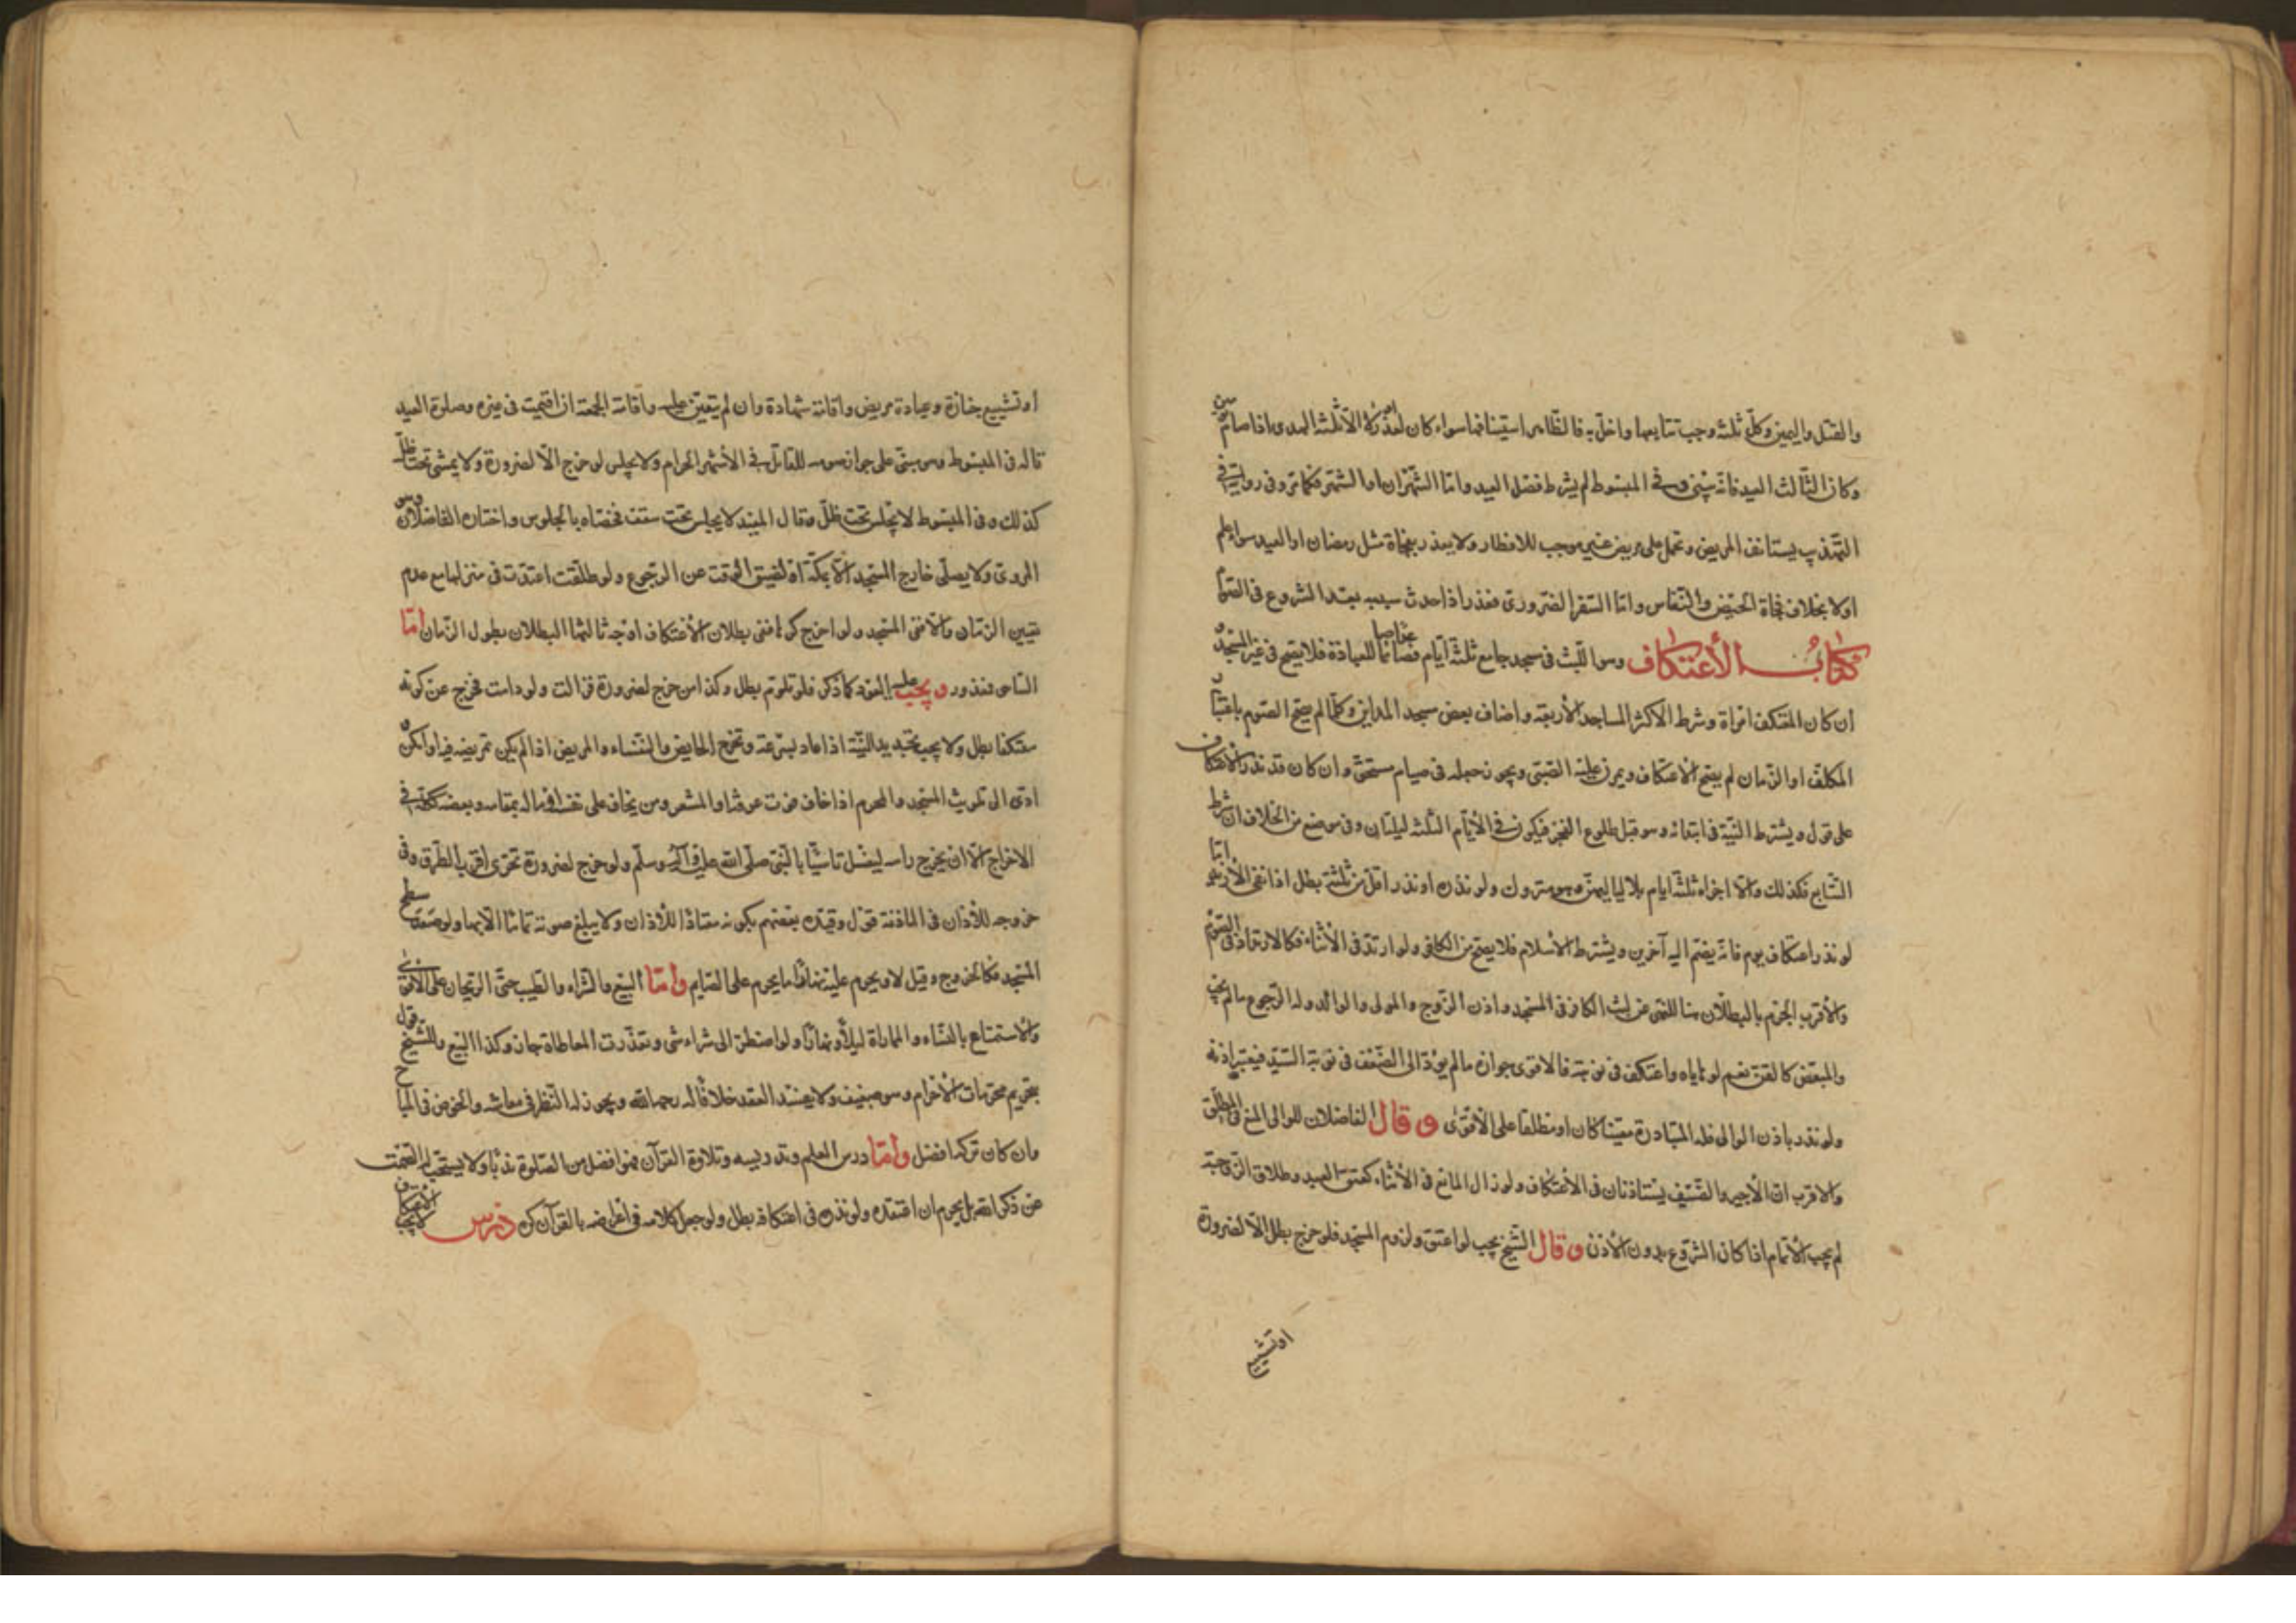 والقتل واليمين وكل ثلثة وجب تتابعها واخل به فالظاهر استينافها سواء كان لعذر او لا الا ثلثة الهدى اذا صام يومين
وكان الثالث العيد فانه يبنى وفي المبسوط لم يشرط فصل العيد واما الشهران او الشهر فكما مر وفي رواية في
التهذيب يستانف المريض وتحمل على مريض غير موجب للافطار ولا يعذر بفجاة مثل رمضان او العيد سواء علم
اولا بخلاف فجاة الحيض والنفاس واما السفر الضروري فعذر اذا حدث سببه بعد الشروع في الصوم
كتاب الأعتكاف وهو اللبث في مسجد جامع ثلثة ايام فصاعدا صائما للعبادة فلا يصح في غير المسجد
ان كان المعتكف امراة وشرط الاكثر المساجد الأربعة واضاف بعض مسجد المداين وكلما لم يصح الصوم باعتبار
المكلف او الزمان لم يصح الاعتكاف ويمرن عليه الصبى ويجوز جعله في صيام مستحق وان كان قد نذر الأعتكاف
على قول ويشترط النية في ابتدائه وهو قبل طلوع الفجر فيكون في الأيام الثلثة ليلتان وفي موضع من الخلاف ان شرط
التتابع فكذلك والا اجزاه ثلثة ايام بلا لياليهن وهو متروك ولو نذره او نذر اقل من ثلثة بطل اذا نفى الأزيد اما
لو نذر اعتكاف يوم فانه يضم اليه آخرين ويشترط الأسلام فلا يصح من الكافر ولو ارتد في الأثناء فكالارتداد في الصوم
والأقرب الجزم بالبطلان هنا للنهى عن لبث الكافر في المسجد واذن الزوج والمولى والوالد وله الرجوع ما لم يجب
والمبعض كالقن نعم لو هاياه واعتكف في نوبته فالاقوى جوازه ما لم يؤد الى الضعف في نوبة السيد فيعتبر اذنه
ولو نذر باذن الوالى فله المبادرة معينا كان او مطلقا على الأقوى وقال الفاضلان للوالى المنع في المطلق
والاقرب ان الأجير والضيف يستاذنان في الأعتكاف ولو زال المانع في الأثناء كعتق العبد وطلاق الزوجة
لم يجب الأتمام اذا كان الشروع بدون الأذن وقال الشيخ يجب لو اعتق ولزوم المسجد فلو خرج بطل الا لضرورة
او تشييع
او تشييع جنازة وعيادة مريض واقامة شهادة وان لم يتعين عليه واقامة الجمعة ان اقيمت في غيره وصلوة العيد
قاله في المبسوط وهو مبنى على جواز صومه للقاتل في الأشهر الحرام ولا يجلس لو خرج الا لضرورة ولا يمشى تحت ظل
كذلك وفي المبسوط لا يجلس تحت ظل وقال المفيد لا يجلس تحت سقف فخصاه بالجلوس واختاره الفاضلان وهو
المروى ولا يصلى خارج المسجد الا بمكة او لضيق الوقت عن الرجوع ولو طلقت اعتدت في منزلها مع عدم
تعيين الزمان والا ففى المسجد ولو اخرج كرها ففى بطلان الأعتكاف اوجه ثالثها البطلان بطول الزمان اما
الساهى فمعذور ويجب عليه العود كما ذكر فلو تلوم بطل وكذا من خرج لضرورة فزالت ولو دامت فخرج عن كونه
معتكفا بطل ولا يجب تجديد النية اذا عاد بسرعة وتخرج الحايض والنفساء والمريض اذا لم يمكن تمريضه فيه او امكن
ادى الى تلويث المسجد والمحرم اذا خاف فوت عرفة او المشعر ومن يخاف على نفسه او ماله بمقامه وبعضه ككله في
الاخراج الا ان يخرج راسه ليغسل تاسيا بالنبى صلى الله عليه وآله وسلم ولو خرج لضرورة تحرى اقرب الطرق وفي
خروجه للأذان في الماذنة قول وقيده بعضهم بكونه معتادا للأذان ولا يبلغ صوته تماما الا بها ولو صعد سطح
المسجد فكالخروج وقيل لا ويحرم عليه نهارا ما يحرم على الصايم واما البيع والشراء والطيب حتى الريحان على الأقوى
والأستمتاع بالنساء والمماراة ليلا ونهارا ولو اضطر الى شراء شى وتعذرت المعاطاة جاز وكذا البيع وللشيخ قول
بتحريم محرمات الأحرام وهو ضعيف ولا يفسد العقد خلافا له رحمه الله ويجوز له النظر في معاشه والخوض في المباح
وان كان تركها افضل واما درس العلم وتدريسه وتلاوة القرآن فهو افضل من الصلوة ندبا ولا يستحب له الصمت
عن ذكر الله بل يحرم ان اعتقده ولو نذره في اعتكافه بطل ولو جعل كلامه في اغراضه بالقرآن كره درس لا يجب الأعتكاف